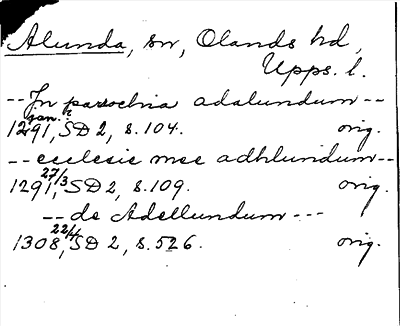 Alunda, sn, Olands hd,
Upps. l.
-- In parochia adalundum --
jan.?
1291, SD 2, s. 104. orig.
-- ecclesie mee adhlundum --
27/3
1291, SD 2, s. 109. orig.
-- de Adellundum ---
22/4
1308, SD 2, s. 526. orig.